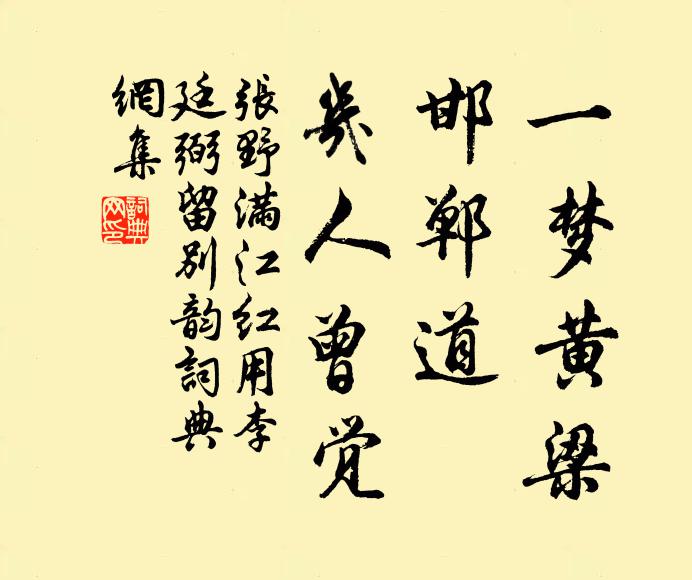 一梦黄梁
邯郸道
几人曾觉
張野满江红用李
廷弼留别韵詞典
網集
詞典
网印